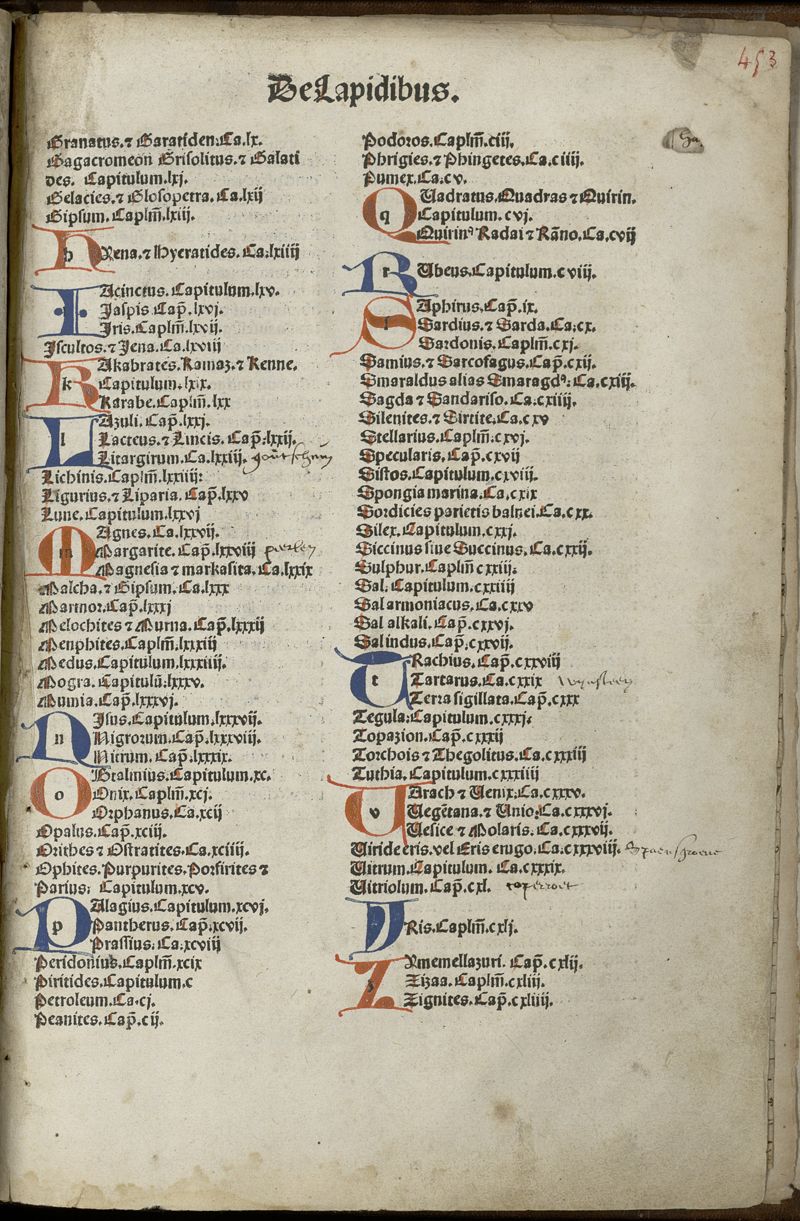 453
De Lapidibus.
Granatus.⁊ Garatiden:Ca.lx.
Gagacromeon Grisolitus.⁊ Galati
des. Capitulum.lxj.
Gelacies.⁊ Glosopetra. Ca.lxij
Gipsum. Caplm̄.lxiij.
h Yena.⁊ Hyeratides. Ca:lxiiij
I Acinctus. Capitulum.lxv.
Jaspis Cap̄. lxvj.
Iris.Caplm̄.lxvij.
Iscultos.⁊ Jena. Ca.lxviij
k Akabrates.Kamaz.⁊ Kenne.
Capitulum.lxix.
Karabe.Caplm̄.lxx
l Azuli. Cap̄.lxxj.
Lacteus.⁊ Lincis. Cap̄:lxxij.
Litargirum.Ca.lxxiij.
Lichinis.Caplm̄.lxxiiij:
Ligurius.⁊ Liparia. Cap̄.lxxv
Lune. Capitulum.lxxvj
m Agnes. Ca.lxxvij.
Margarite. Cap̄.lxxviij perlen
Magnesia ⁊ markasita. Ca.lxxix
Malcha.⁊ Gipsum. Ca.lxxx
Marmor.Cap̄.lxxxj
Melochites ⁊ Murna. Cap̄.lxxxij
Menphites.Caplm̄.lxxxiij
Medus.Capitulum.lxxxiiij.
Mogra. Capitulū:lxxxv.
Mumia.Cap̄.lxxxvj.
n Isus.Capitulum.lxxxvij.
Nigrorum.Cap̄.lxxxviij.
Nitrum. Cap̄.lxxxix.
o Btalmius. Capitulum.xc.
Onix. Caplm̄.xcj.
Orphanus.Ca.xcij
Opalus.Cap̄.xciij.
Orithes ⁊ Ostratites.Ca.xciiij.
Ophites.Purpurites.Porfirites ⁊
Parius: Capitulum.xcv.
p Alagius.Capitulum.xcvj.
Pantherus. Cap̄.xcvij.
Prassius: Ca.xcviij
Peridonius.Caplm̄.xcix
Piritides.Capitulum.c
Petroleum.Ca.cj.
Peanites.Cap̄.cij.
Podoros.Caplm̄.ciij.
Phrigies.⁊ Phingetes.Ca.ciiij.
Pumex.Ca:cv.
q Uadratus.Quadras ⁊ Quirin.
Capitulum.cvj.
Quirinꝰ Radai ⁊ Rāno.Ca.cvij
r Ubeus.Capitulum.cviij.
s Aphirus.Cap̄.ix.
Sardius.⁊ Sarda.Ca:cx.
Sardonis.Caplm̄.cxj.
Samius.⁊ Sarcofagus.Cap̄.cxij.
Smaraldus alias Smaragdꝰ: Ca.cxiij.
Sagda ⁊ Sandariso.Ca:cxiiij.
Silenites.⁊ Sirtite.Ca.cxv
Stellarius.Caplm̄:cxvj.
Specularis.Cap̄.cxvij
Sistos.Capitulum.cxviij.
Spongia marina.Ca.cxix
Sordicies parietis balnei.Ca.cxx.
Silex. Capitulum.cxxj.
Siccinus siue Succinus. Ca.cxxij.
Sulphur.Caplm̄ cxxiij:
Sal: Capitulum.cxxiiij
Sal armoniacus.Ca.cxxv
Sal alkali. Cap̄.cxxvj.
Sal indus.Cap̄:cxxvij.
t Rachius.Cap̄.cxxviij
Tartarus.Ca.cxxix
Terra sigillata.Cap̄.cxxx
Tegula:Capitulum.cxxxj.
Topazion.Cap̄.cxxxij
Torchois ⁊ Thegolitus.Ca.cxxxiij
Tuthia. Capitulum.cxxxiiij
v Arach ⁊ Uenix:Ca.cxxxv.
Uegētana.⁊ Unio:Ca.cxxxvj.
Uesice ⁊ Molaris. Ca.cxxxvij.
Uiride eris.vel Eris erugo.Ca:cxxxviij. Spaensgroene
Uitrum.Capitulum. Ca.cxxxix.
Uitriolum.Cap̄.cxl. coperroet
Y Ris.Caplm̄.cxlj.
z Ymemellazuri. Cap̄.cxlij.
Zizaa. Caplm̄.cxliij.
Zignites.Cap̄.cxliiij.